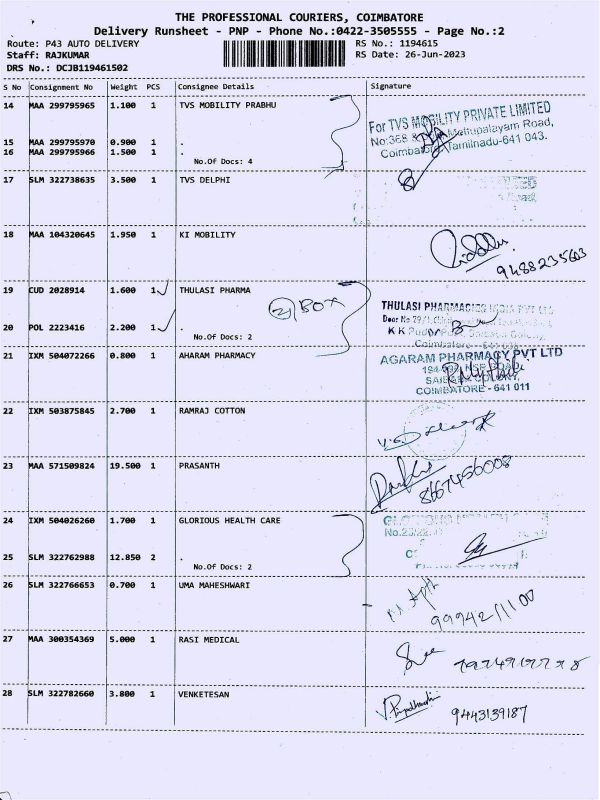 THE PROFESSIONAL COURIERS, COIMBATORE
Delivery Runsheet - PNP - Phone No.:0422-3505555 - Page No.:2
Route: P43 AUTO DELIVERY RS No.: 1194615
Staff: RAJKUMAR RS Date: 26-Jun-2023
DRS No.: DCJB119461502
S No Consignment No Weight PCS Consignee Details Signature
14 MAA 299795965 1.100 1 TVS MOBILITY PRABHU
For TVS MOBILITY PRIVATE LIMITED
No:368 Mettupalayam Road,
Coimbatore, Tamilnadu-641 043.
15 MAA 299795970 0.900 1 .
16 MAA 299795966 1.500 1 .
No.Of Docs: 4
17 SLM 322738635 3.500 1 TVS DELPHI
18 MAA 104320645 1.950 1 KI MOBILITY
9488235603
19 CUD 2028914 1.600 1 THULASI PHARMA
2 BOX
THULASI PHARMACIES INDIA PVT LTD
20 POL 2223416 2.200 1 .
No.Of Docs: 2
21 IXM 504072266 0.800 1 AHARAM PHARMACY
AGARAM PHARMACY PVT LTD
SAIBABA COLONY,
COIMBATORE - 641 011
22 IXM 503875845 2.700 1 RAMRAJ COTTON
23 MAA 571509824 19.500 1 PRASANTH
8667456008
24 IXM 504026260 1.700 1 GLORIOUS HEALTH CARE
25 SLM 322762988 12.850 2 .
No.Of Docs: 2
26 SLM 322766653 0.700 1 UMA MAHESHWARI
9994211100
27 MAA 300354369 5.000 1 RASI MEDICAL
28 SLM 322782660 3.800 1 VENKETESAN
9443139187